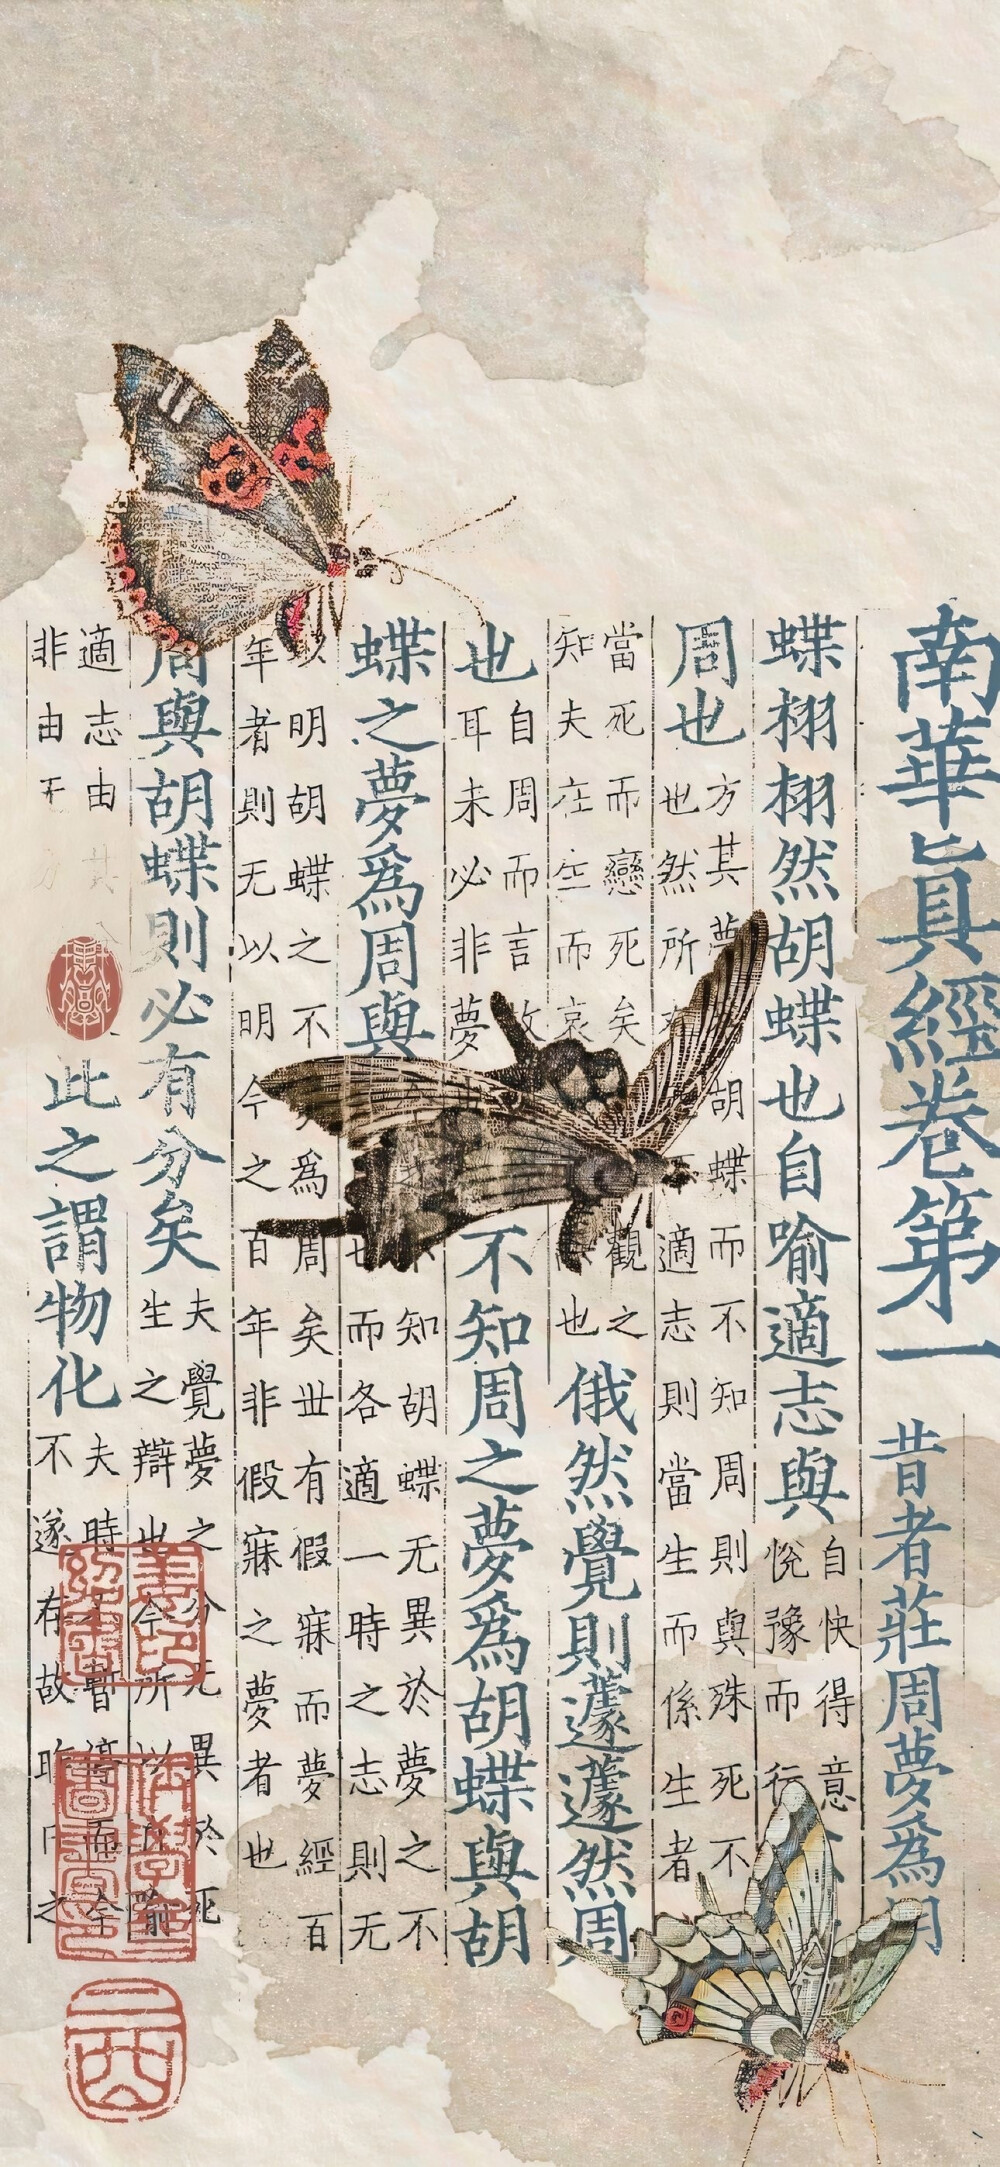 南華眞經卷第一
昔者莊周夢爲胡
蝶栩栩然胡蝶也自喻適志與
自快得意
悅豫而行
周也
方其夢胡蝶而不知周則與殊死不
也然所適志則當生而係生者
當死而戀死矣觀之
知夫在生而哀也
俄然覺則蘧蘧然周
也
自周而言故
耳未必非夢
不知周之夢爲胡蝶與胡
蝶之夢爲周與
知胡蝶无異於夢之不
也而各適一時之志則无
以明胡蝶之不爲周矣世有假寐而夢經百
年者則无以明今之百年非假寐之夢者也
周與胡蝶則必有分矣
夫覺夢之分无異於死
生之辯也今所以喻
適志由其
非由无
此之謂物化
夫時暫停而今
不遂存故昨日之